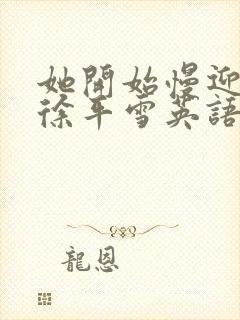 她開始慢迎
徐年雪英語
龍恩